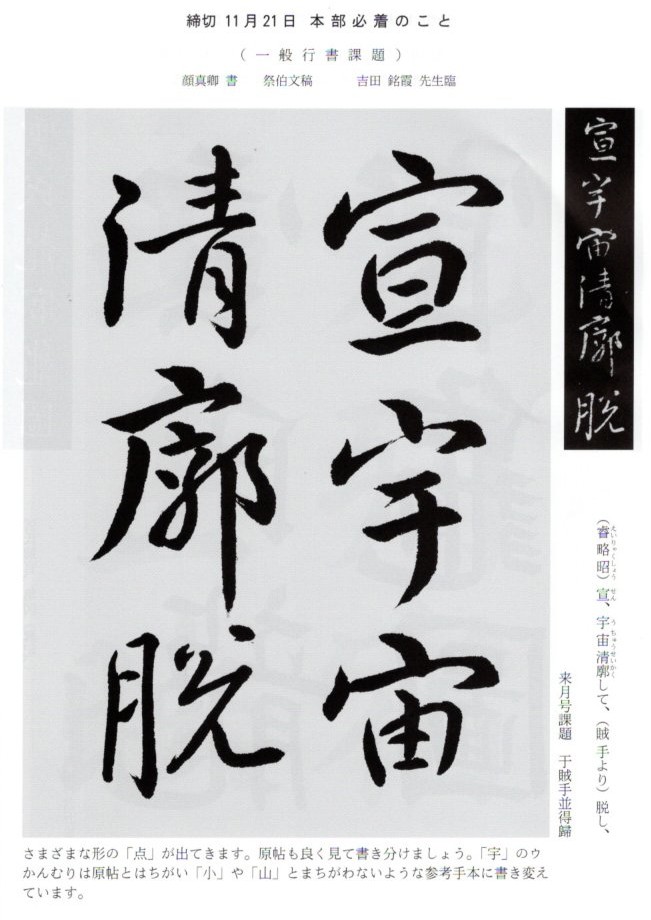 締切 11月21日 本部必着のこと
（一般行書課題）
顔真卿 書 祭伯文稿 吉田 銘霞 先生臨
宣宇宙清廓脱
宣宇宙
清廓脱
（睿略昭）宣、宇宙清廓して、（賊手より）脱し、
えいりゃくしょう せん うちゅうせいかく
来月号課題 于賊手並得歸
さまざまな形の「点」が出てきます。原帖も良く見て書き分けましょう。「宇」のゥ
かんむりは原帖とはちがい「小」や「山」とまちがわないような参考手本に書き変え
ています。